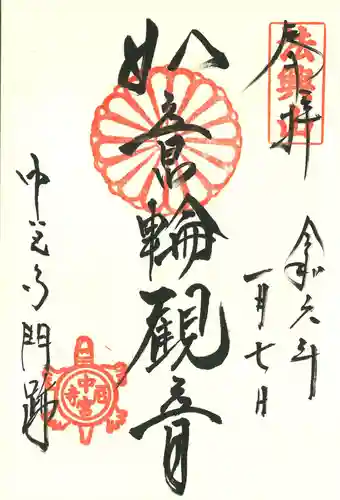 奉拝
法興山
令和六年
一月七日
如意輪観音
中宮寺門跡
中宮寺